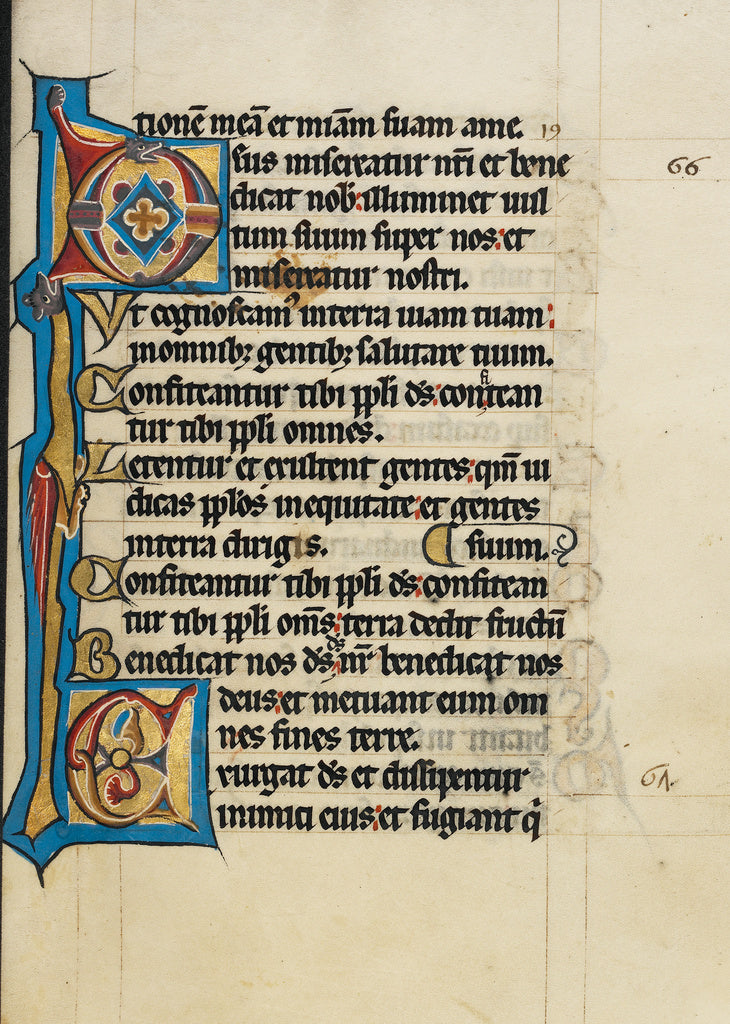 tionē meā et miam̄ suam a me. 19
Deus misereatur nr̄i et bene 66
dicat nob: illuminet uul
tum suum super nos: et
misereatur nostri.
Ut cognoscam᷒ in terra uiam tuam:
in omnibȝ gentibȝ salutare tuum.
Confiteantur tibi ppl̄i ds̄: confitean
tur tibi ppl̄i omnes.
Letentur et exultent gentes: qm̄ iu
dicas ppl̄os in equitate: et gentes
in terra dirigis. suum.
Confiteantur tibi ppl̄i ds̄: confitean
tur tibi ppl̄i oms̄: terra dedit fructū
Benedicat nos ds̄ ds̄ nr̄ benedicat nos
deus: et metuant eum om
nes fines terre.
Exurgat ds̄ et dissipentur 67
inimici eius: et fugiant q̄